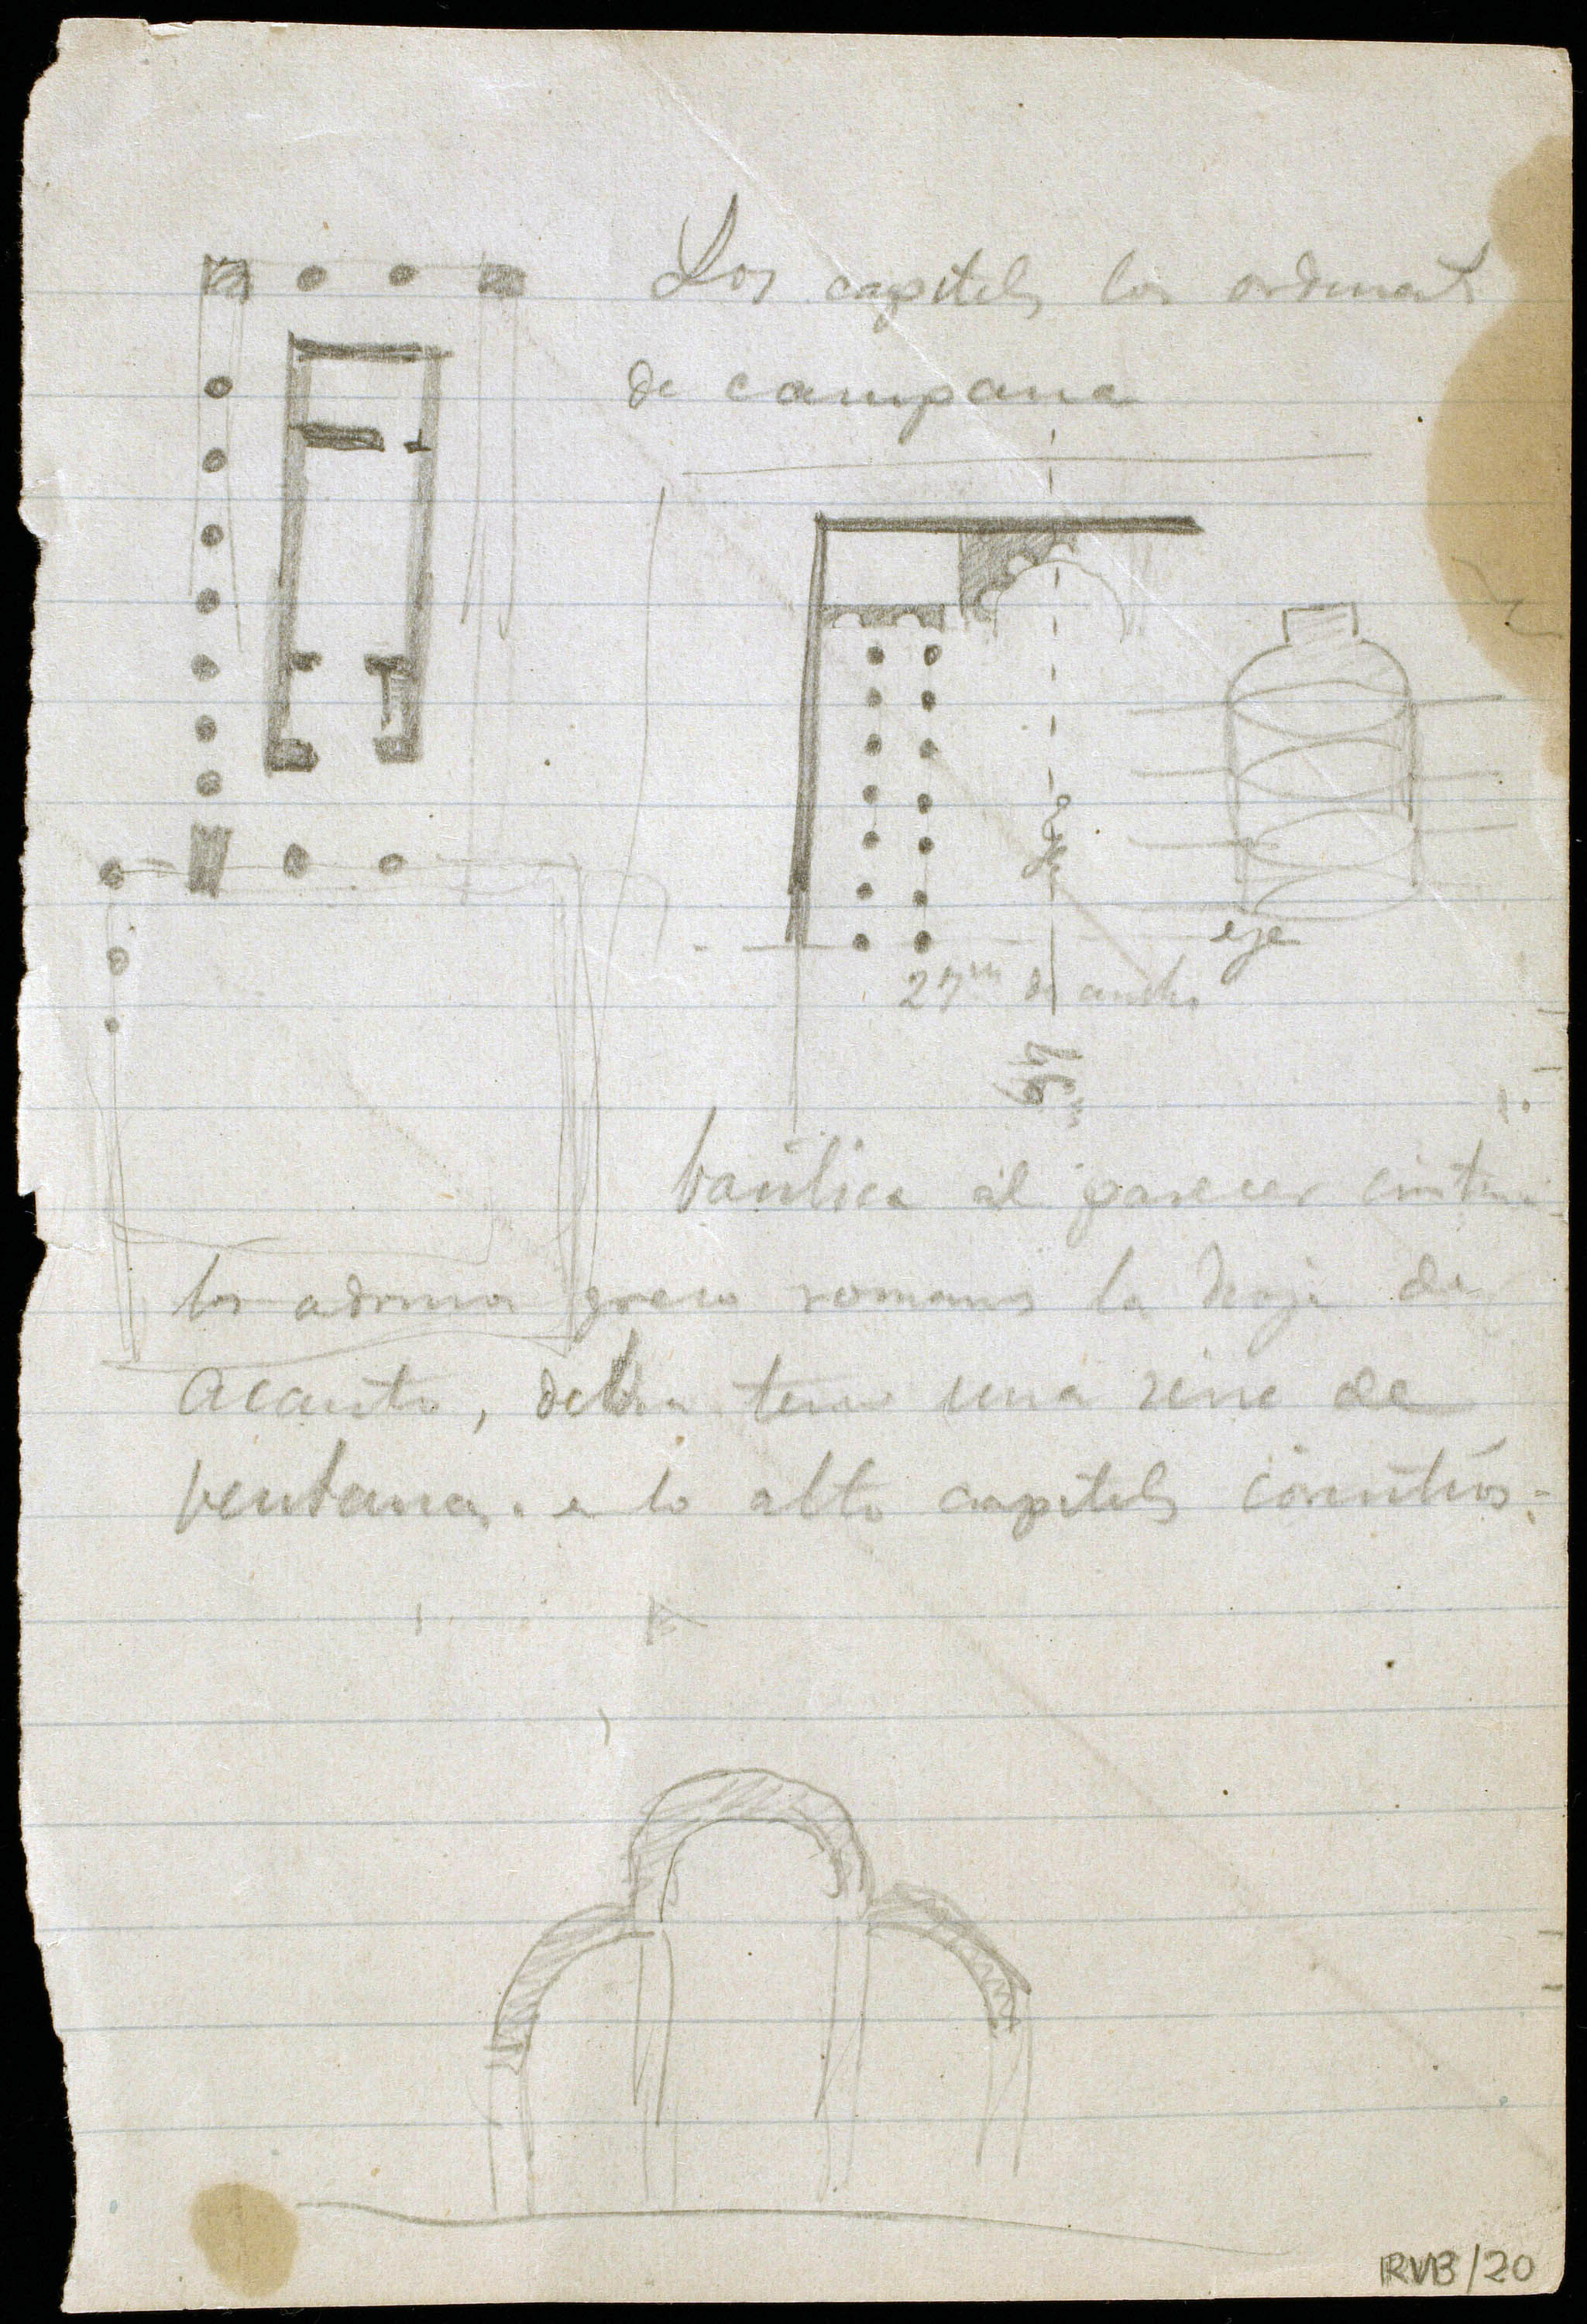 Los capiteles los ordinarios
de campana
eje
eje
27m de ancho
57m
basilica al parecer
los adornos greco romanos la hoja de
acanto, debia tener una serie de
ventanas e lo alto capiteles corintios
RVB/20